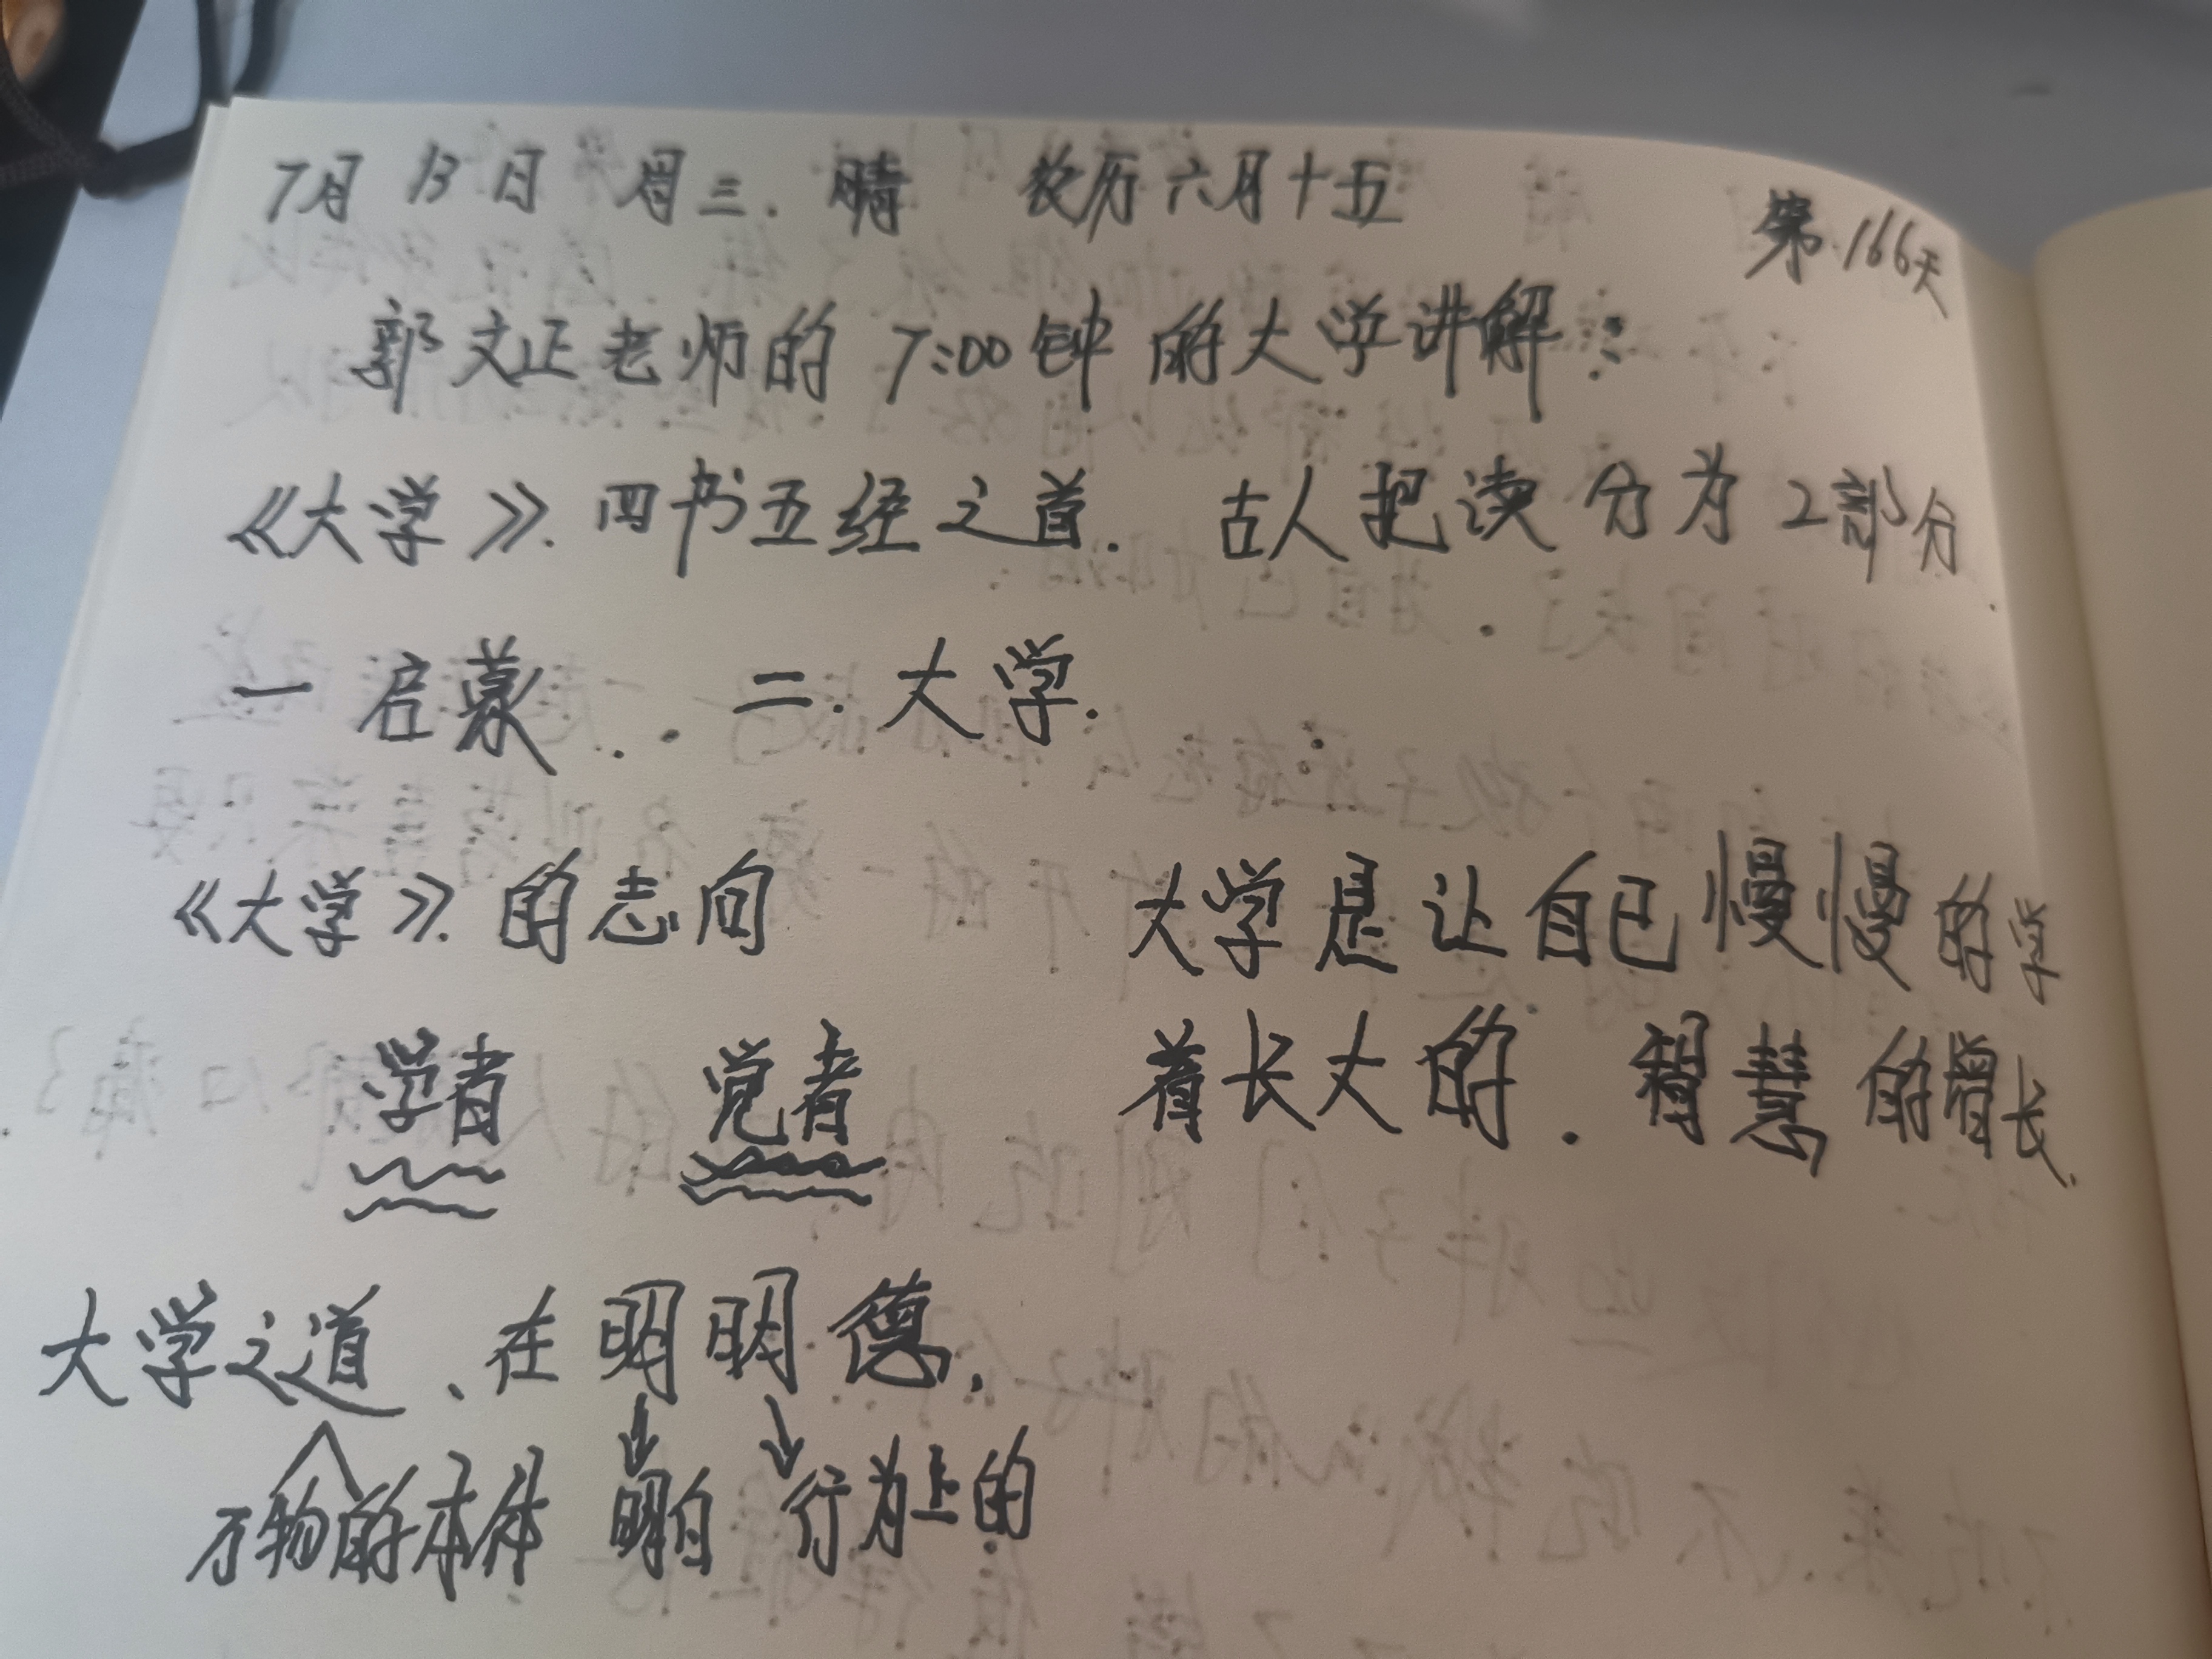 7月13日 周三. 晴 农历六月十五 第.166天
郭文正老师的7:00钟的大学讲解:
《大学》. 四书五经之首. 古人把读分为2部分
一启蒙.. 二.大学.
《大学》.的志向 大学是让自已慢慢的学
学者 觉者 着长大的.智慧的增长.
大学之道、在明明德.
万物的本体 明白 行为上的